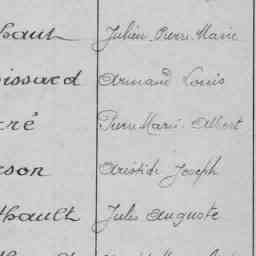 haut Julien Pierre Marie
issard Armand Louis
cré Pierre Marie Albert
rson Aristide Joseph
thault Jules Auguste